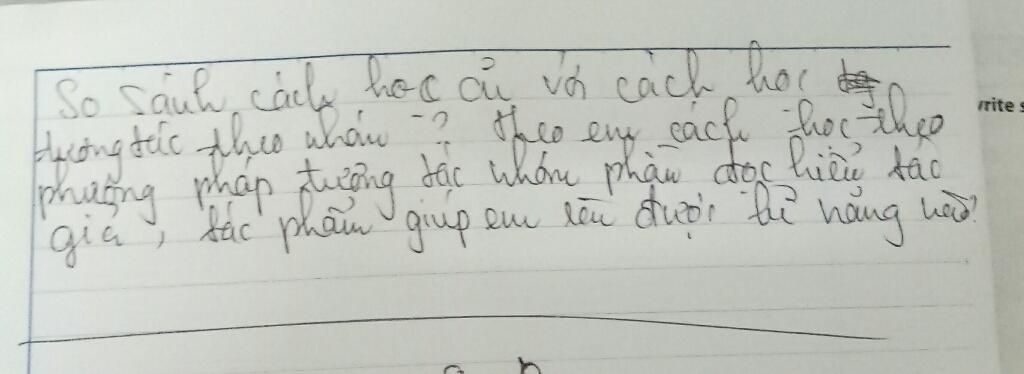 So sánh cách học cũ với cách học
tương tác theo nhóm -? theo em cách học theo
phương pháp tương tác nhóm phần đọc hiểu tác
giả, tác phẩm giúp em rèn được kĩ năng nào?
rite s